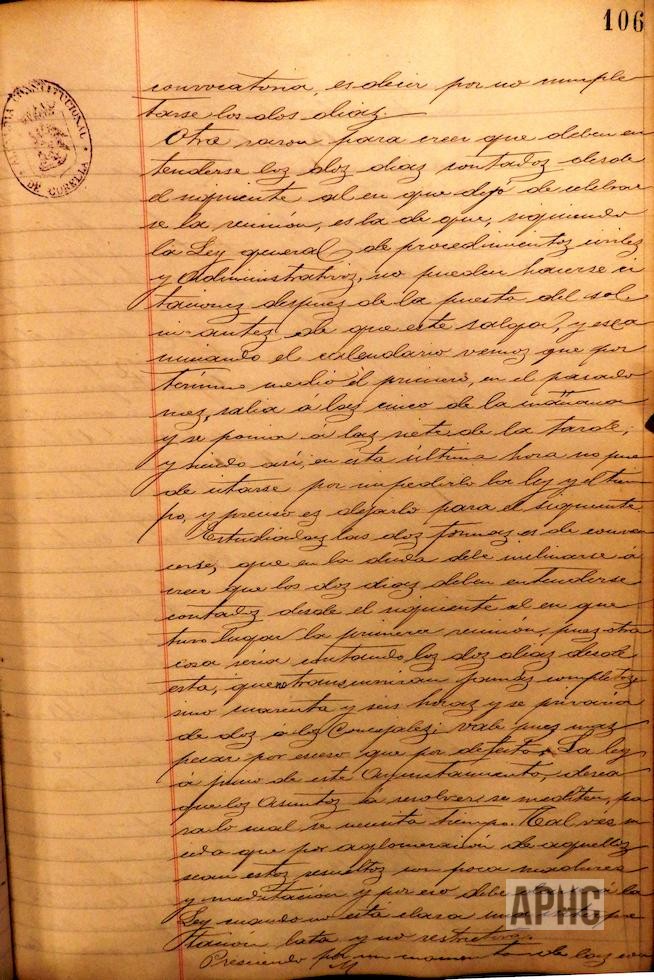 106
ALCALDIA CONSTITUCIONAL
DE CORELLA
convocatoria, es decir por no comple
tarse los dos dias.
Otra razon para creer que deben en
tenderse los dos dias contados desde
el siguiente al en que dejó de celebrar
se la reunión, es la de que, siguiendo
la Ley general de procedimientos civiles
y Administrativos, no pueden hacerse ci
taciones despues de la puesta del sol,
ni antes de que este salga, y exa
minando el calendario vemos que por
término medio el primero, en el pasado
mes, salia á las cinco de la mañana
y se ponia á las siete de la tarde;
y siendo así, en esta última hora no pue
de citarse por impedirlo la ley y el tiem
po, y preciso es dejarlo para el siguiente.
Estudiadas las dos formas, es de conven
cerse, que en la duda debe inclinarse á
creer que los dos dias deben entenderse
contados desde el siguiente al en que
tuvo lugar la primera reunión, pues otra
cosa seria contando los dos dias desde
esta, que no transcurririan jamás completos
sino cuarenta y seis horas y se privaria
de dos á los Concejales: vale pues mas
pecar por exceso que por defecto. La ley
á juicio de este Ayuntamiento, desea
que los Asuntos á resolver, se mediten, pa
ra lo cual se necesita tiempo. Tal vez su
ceda que por aglomeración de aquellos
sean estos resueltos con poca madurez
y meditación y por eso debe á la
Ley cuando no está clara una
tación lata y no restrictiva.
Presciendo por un momento de las
APHC